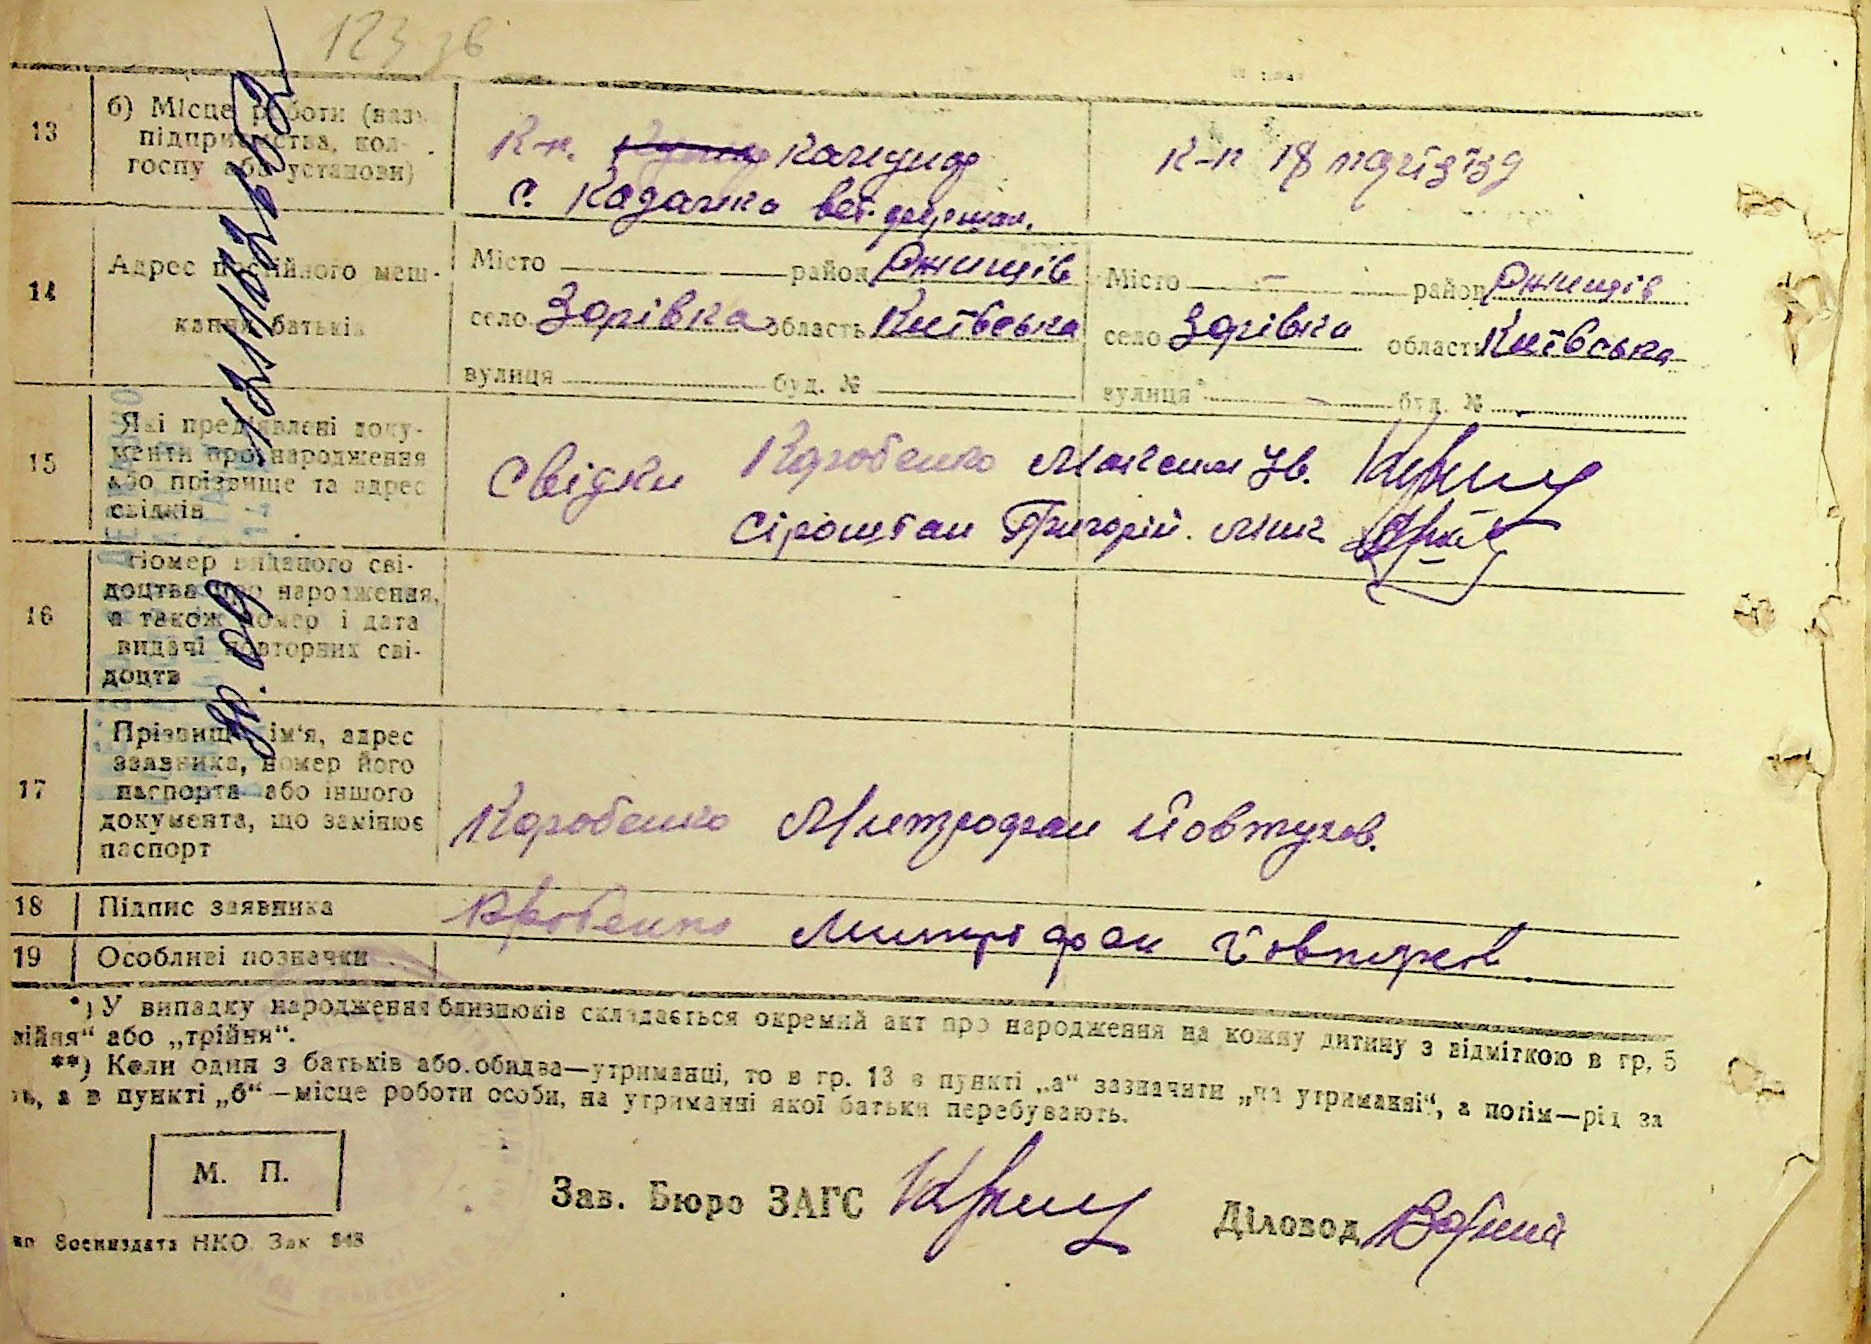 123 зв
13
б) Місце роботи (назв
підприємства, кол-
госпу або установи)
К-п.
с. Казачка вет.
К-п 18 партз'їзд
14
Адрес постійного меш-
кання батьків
Місто район Ржищів
село Зорівка область Київська
вулиця буд. №
Місто — район Ржищів
село Зорівка область Київська
вулиця буд. №
15
Які пред'явлені доку-
менти про народження
або прізвище та адрес
свідків
Свідки Коробенко Максим Ів.
Сіроштан Григорій
16
Номер виданого сві-
доцтва про народження,
а також номер і дата
видачі повторних сві-
доцтв
17
Прізвище ім'я, адрес
заявника, номер його
паспорта або іншого
документа, що замінює
паспорт
Коробенко Митрофан Йовтухов.
18
Підпис заявника
Коробенко Митрофан Йовтухов
19
Особливі позначки
*) У випадку народження близнюків складається окремий акт про народження на кожну дитину з відміткою в гр. 5
ійня“ або „трійня“.
**) Коли один з батьків або обидва—утриманці, то в гр. 13 в пункті „а“ зазначити „на утриманні“, а потім—рід за
а в пункті „б“—місце роботи особи, на утриманні якої батьки перебувають.
М. П.
Зав. Бюро ЗАГС
Діловод
Воениздата НКО Зак 348